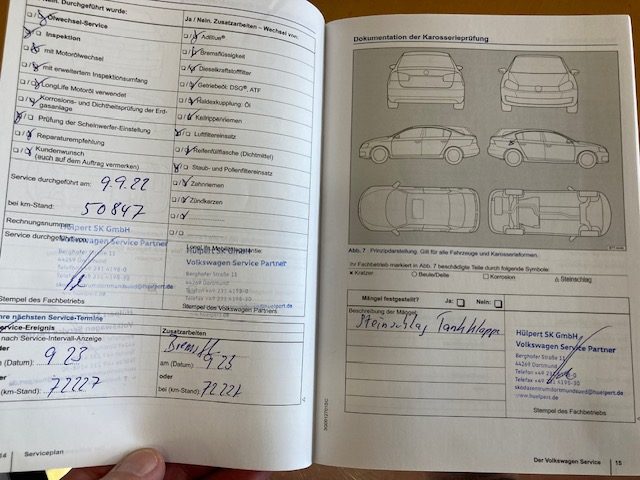 Nein. Durchgeführt wurde:
Ölwechsel-Service
Inspektion
mit Motorölwechsel
mit erweitertem Inspektionsumfang
LongLife Motoröl verwendet
Korrosions- und Dichtheitsprüfung der Erdgasanlage
Prüfung der Scheinwerfer-Einstellung
Reparaturempfehlung
Kundenwunsch
(auch auf dem Auftrag vermerken)
Service durchgeführt am: 9.9.22
bei km-Stand: 50847
Rechnungsnummer
Service durchgeführt von:
Hülpert SK GmbH
Volkswagen Service Partner
Berghofer Straße 11
44269 Dortmund
Stempel des Fachbetriebs
Ja / Nein. Zusatzarbeiten – Wechsel von:
AdBlue®
Bremsflüssigkeit
Dieselkraftstofffilter
Getriebeöl: DSG®, ATF
Haldexkupplung: Öl
Keilrippenriemen
Luftfiltereinsatz
Reifenfüllflasche (Dichtmittel)
Staub- und Pollenfiltereinsatz
Zahnriemen
Zündkerzen
LongLife Mobilitätsgarantie:
Hülpert SK GmbH
Volkswagen Service Partner
Berghofer Straße 11
44269 Dortmund
Stempel des Volkswagen Partners
Ihre nächsten Service-Termine
Service-Ereignis
nach Service-Intervall-Anzeige
oder
(Datum): 9 23
oder
km-Stand): 72227
Zusatzarbeiten
am (Datum): 9 23
oder
bei (km-Stand): 72227
Serviceplan
Dokumentation der Karosserieprüfung
Abb. 7 Prinzipdarstellung. Gilt für alle Fahrzeuge und Karosserieformen.
Ihr Fachbetrieb markiert in Abb. 7 beschädigte Teile durch folgende Symbole:
× Kratzer ○ Beule/Delle □ Korrosion △ Steinschlag
Mängel festgestellt? Ja: Nein:
Beschreibung der Mängel:
Steinschlag Tankklappe
Hülpert SK GmbH
Volkswagen Service Partner
Berghofer Straße 11
44269 Dortmund
Telefon +49 231
Telefax +49 231 4198-30
www.huelpert.de
Stempel des Fachbetriebs
Der Volkswagen Service 15